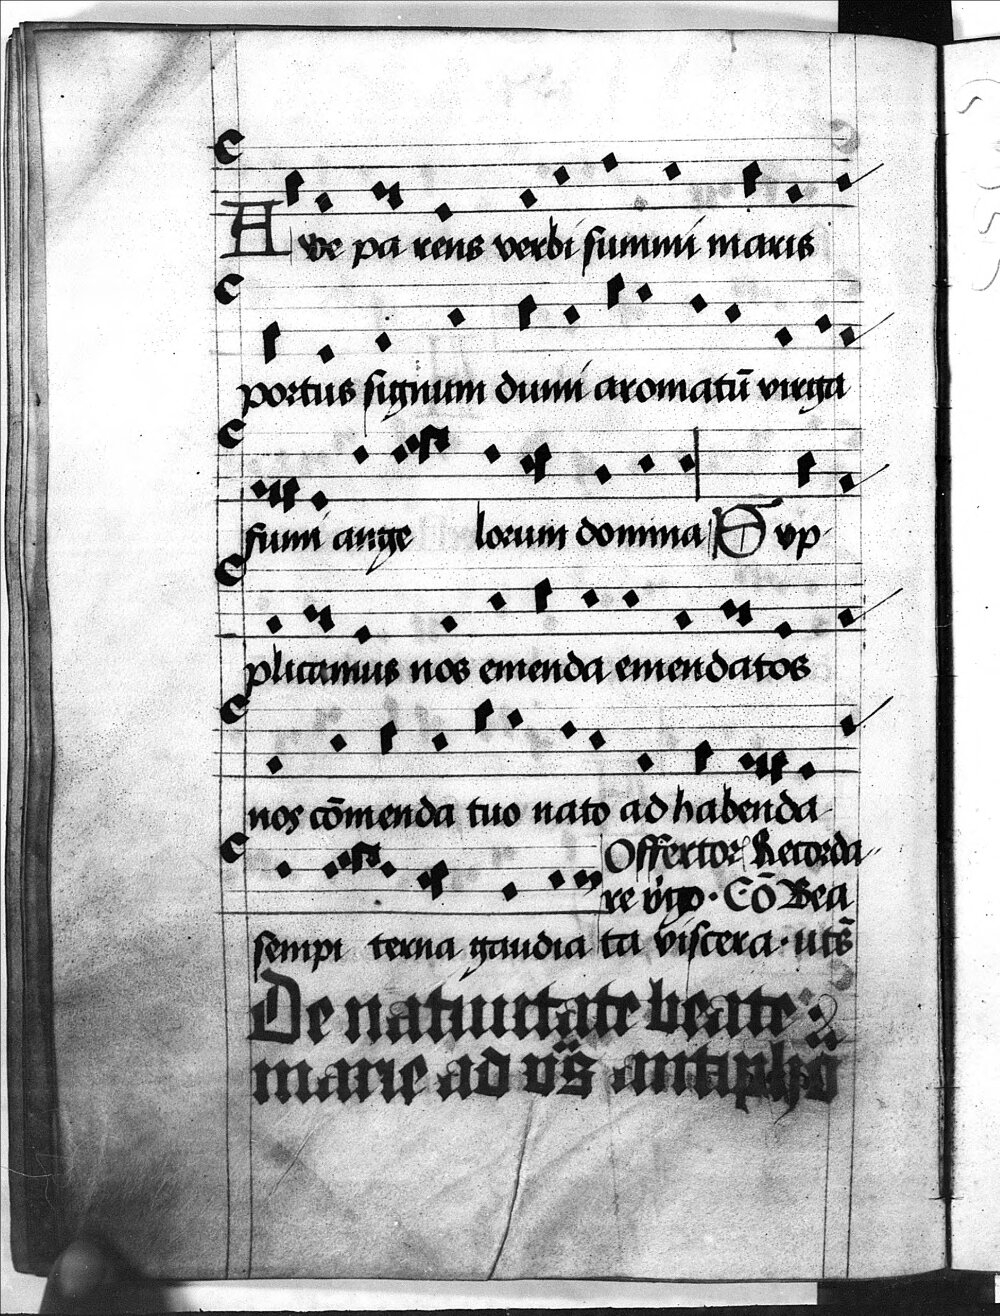 Ave pa rens verbi summi maris
portus signum dumi aromatū virga
fumi ange lorum domina Sup
plicamus nos emenda emendatos
nos cōmenda tuo nato ad habenda
sempi terna gaudia
Offertor Recorda
re v̄go · Cō Bea
ta viscera · utš
De natiuitate beate
marie ad vs̄ antiphō